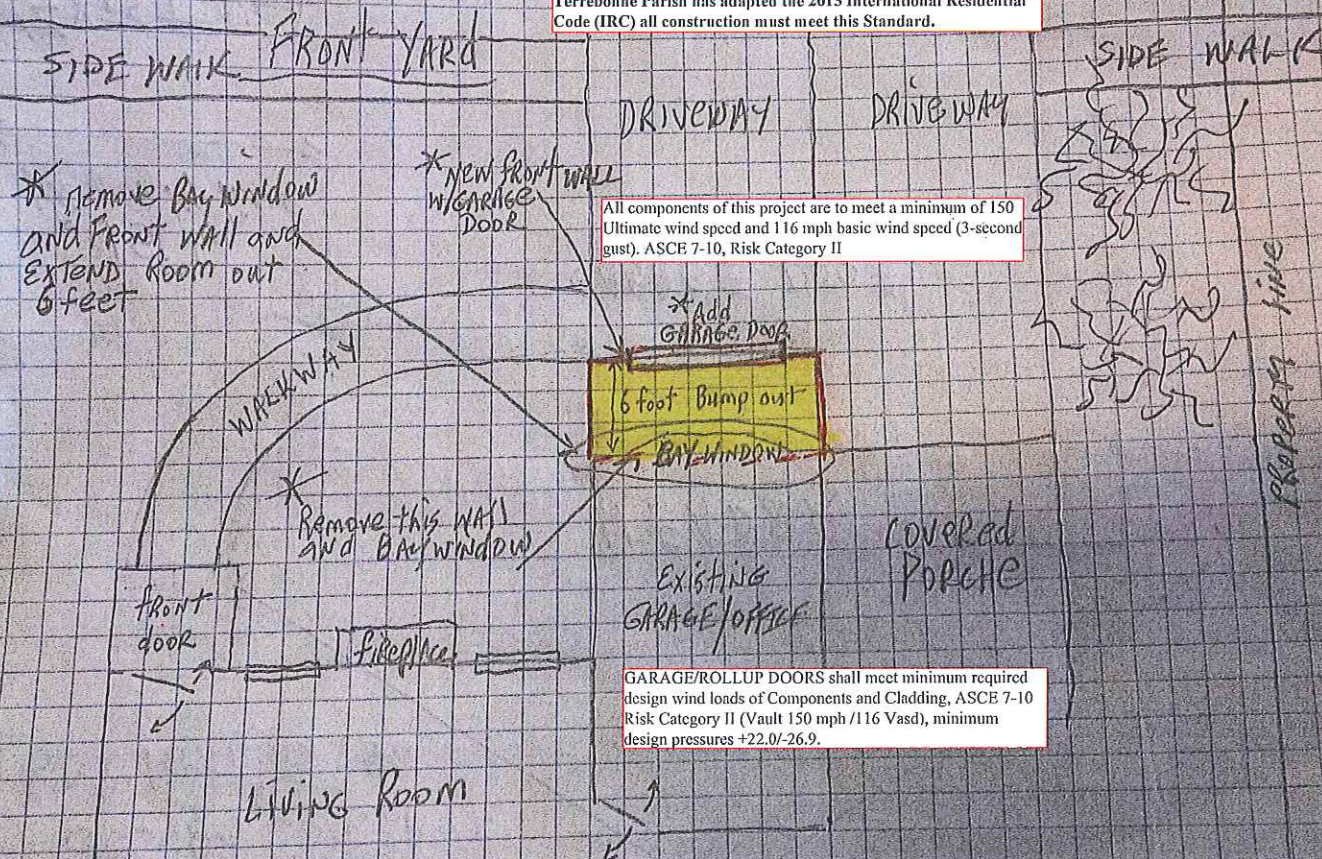 Terrebonne Parish has adapted the 2015 International Residential
Code (IRC) all construction must meet this Standard.
SIDE WALK
FRONT YARD
DRIVEWAY
DRIVEWAY
SIDE WALK
* Remove Bay Window
and Front Wall and
EXTEND Room out
6 feet
* New front WALL
W/GARAGE
DOOR
All components of this project are to meet a minimum of 150
Ultimate wind speed and 116 mph basic wind speed (3-second
gust). ASCE 7-10, Risk Category II
* Add
GARAGE DOOR
WALKWAY
6 foot Bump out
BAY WINDOW
PROPERTY LINE
* Remove this WALL
and BAY WINDOW
EXISTING
GARAGE/OFFICE
COVERED
PORCHE
FRONT
door
fireplace
GARAGE/ROLLUP DOORS shall meet minimum required
design wind loads of Components and Cladding, ASCE 7-10
Risk Category II (Vault 150 mph /116 Vasd), minimum
design pressures +22.0/-26.9.
LIVING ROOM